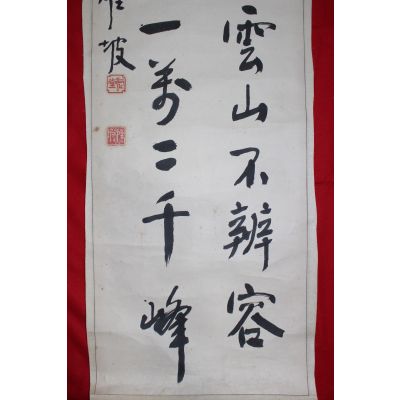 雲山不辨容
一萬二千峰
坡